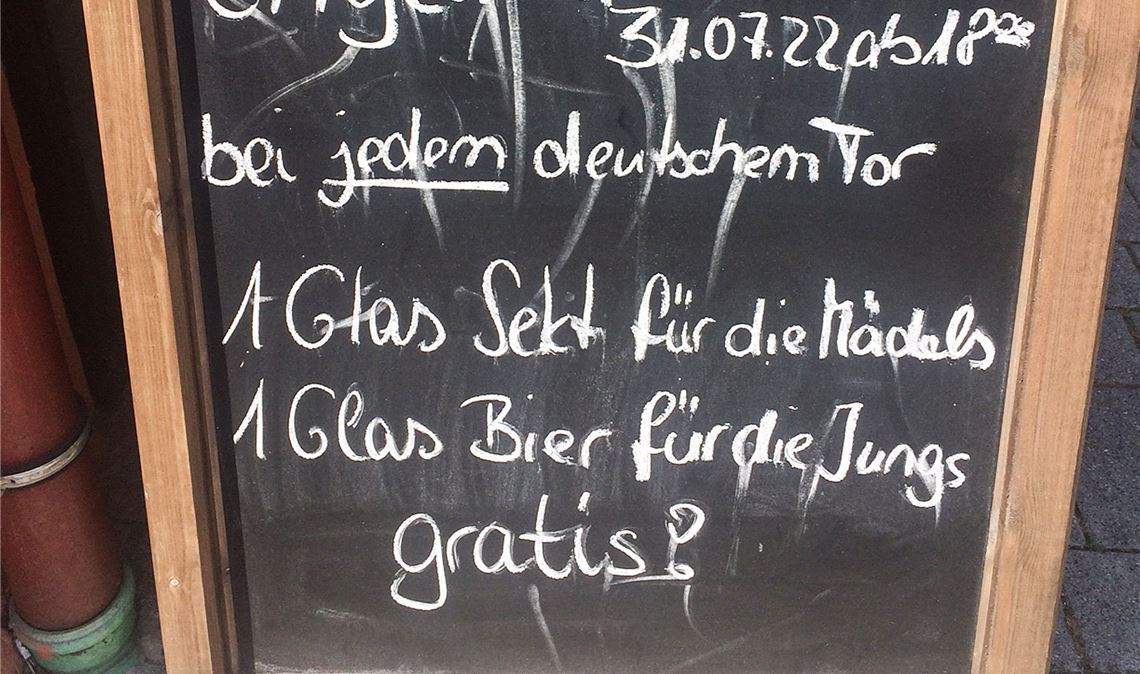 31.07.22 ab 18⁰⁰
bei jedem deutschem Tor
1 Glas Sekt für die Mädels
1 Glas Bier für die Jungs
gratis!